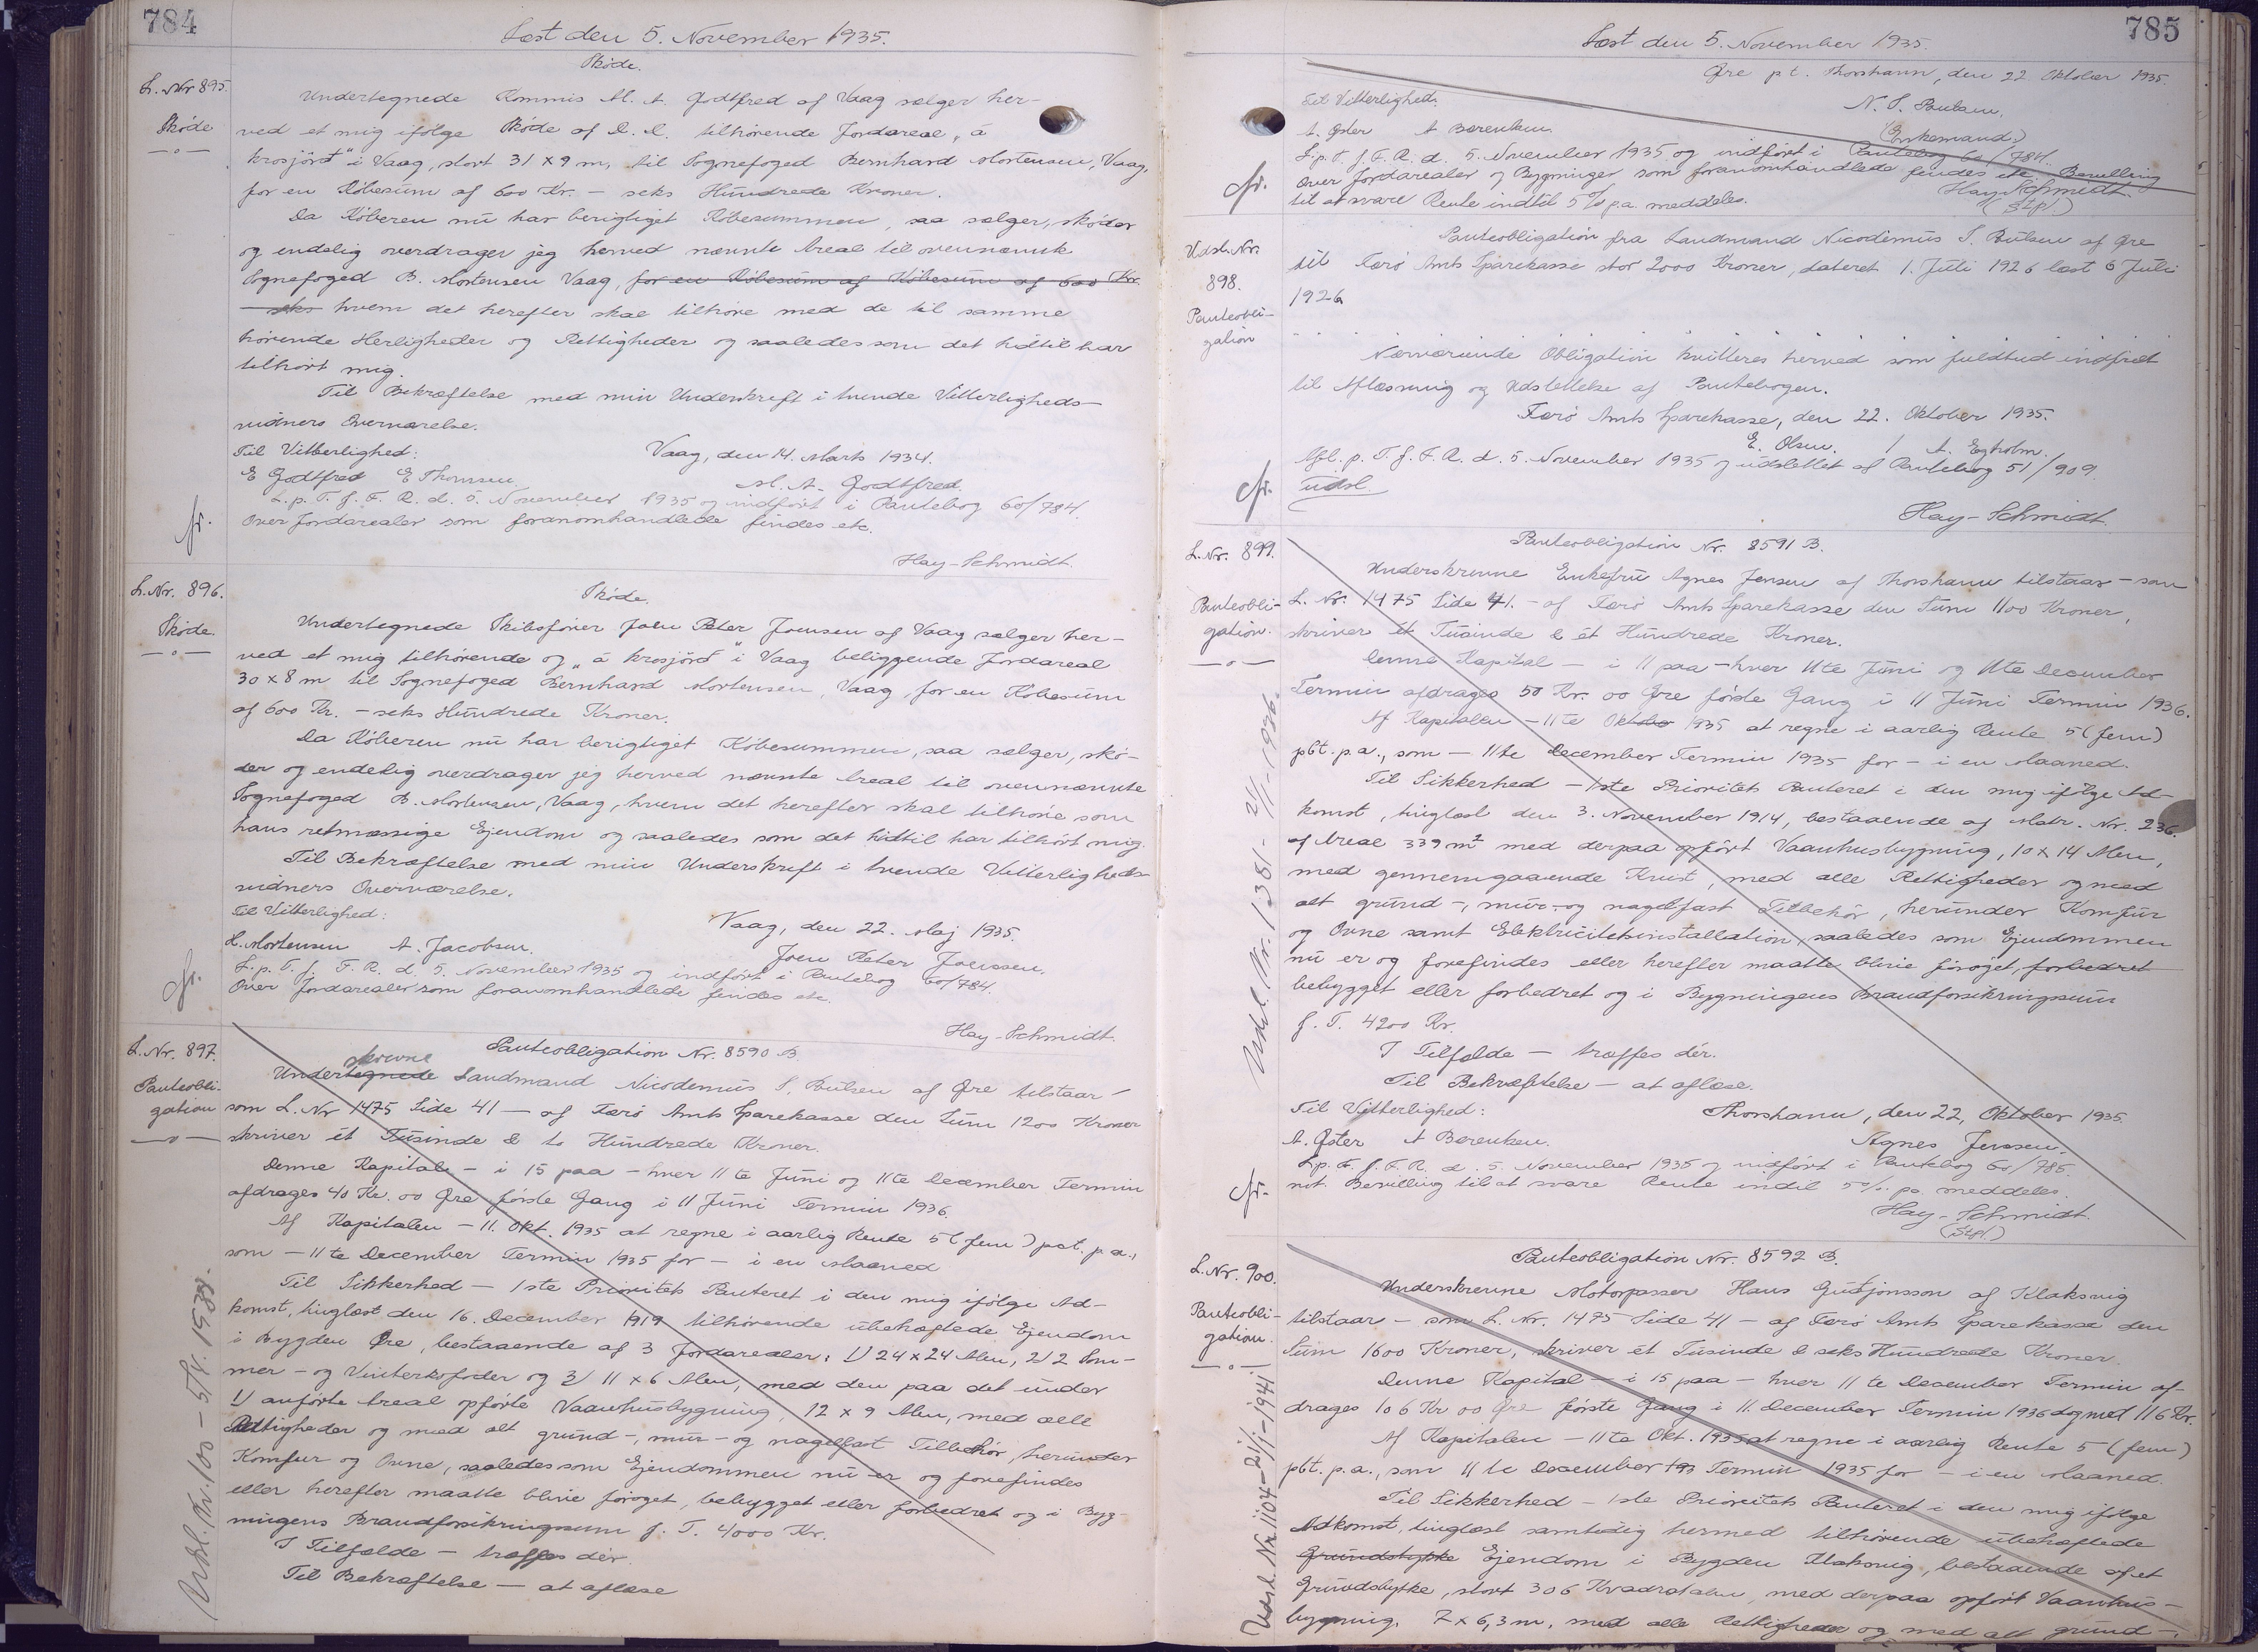 784
Læst den 5. November 1935.
L. Nr 895.
Skøde
Skøde.
Undertegnede Kommis M. A. Godtfred af Vaag sælger her-
ved et mig ifølge Skøde af D. D. tilhørende Jordareal „á
krosjörð“ i Vaag, stort 31 x 9 m, til Sognefoged Bernhard Mortensen, Vaag,
for en Købesum af 600 Kr. – seks Hundrede Kroner.
Da Køberen nu har berigtiget Købesummen, saa sælger, skøder
og endelig overdrager jeg herved nævnte Areal til ovennævnte
Sognefoged B. Mortensen Vaag, for en Købesum af Købesum af 600 Kr.
– seks hvem det herefter skal tilhøre med de til samme
hørende Herligheder og Rettigheder og saaledes som det hidtil har
tilhørt mig.
Til Bekræftelse med min Underskrift i tvende Vitterligheds-
vidners Overværelse.
Til Vitterlighed:
Vaag, den 14. Marts 1934.
E Godtfred E Thomsen
M. A. Godtfred.
L. p. T. f. F. R. d. 5. November 1935 og indført i Pantebog 60/784.
Over Jordarealer som foranomhandlede findes etc.
Hay-Schmidt.
L. Nr. 896.
Skøde.
Skøde.
Undertegnede Skibsfører Joen Peter Joensen af Vaag sælger her-
ved et mig tilhørende og „á krosjörð“ i Vaag beliggende Jordareal
30 x 8 m til Sognefoged Bernhard Mortensen, Vaag, for en Købesum
af 600 Kr. – seks Hundrede Kroner.
Da Køberen nu har berigtiget Købesummen, saa sælger, skø-
der og endelig overdrager jeg herved nævnte Areal til ovennævnte
Sognefoged B. Mortensen, Vaag, hvem det herefter skal tilhøre som
hans retmæssige Ejendom og saaledes som det hidtil har tilhørt mig.
Til Bekræftelse med min Underskrift i tvende Vitterligheds-
vidners Overværelse.
Til Vitterlighed:
Vaag, den 22. Maj 1935.
H. Mortensen A. Jacobsen.
Joen Peter Joenssen.
L. p. T. f. F. R. d. 5. November 1935 og indført i Pantebog 60/784.
Over Jordarealer som foranomhandlede findes etc.
Hay-Schmidt.
L. Nr. 897.
Pantebli-
gation
Pantebligation Nr. 8590 B.
skrevne
Undertegnede Landmand Nicodemus S. Poulsen af Øre tilstaar –
som L. Nr 1475 Side 41 – af Færø Amts Sparekasse den Sum 1200 Kroner
skriver ét Tusinde & to Hundrede Kroner.
Denne Kapital – i 15 paa – hver 11te Juni og 11te December Termin
afdrages 40 Kr. 00 Øre første Gang i 11 Juni Termin 1936.
Af Kapitalen – 11. Okt. 1935 at regne i aarlig Rente 5 (fem) pct. p. a.,
som – 11te December Termin 1935 for – i en Maaned
Til Sikkerhed – 1ste Prioritets Panteret i den mig ifølge Ad-
komst, tinglæst den 16. December 1919 tilhørende ubehæftede Ejendom
i Bygden Øre, bestaaende af 3 Jordarealer: 1) 24 x 24 Alen, 2) 2 Som-
mer- og Vinterkofoder og 3) 11 x 6 Alen, med den paa det under
1) anførte Areal opførte Vaanhusbygning, 12 x 9 Alen, med alle
Rettigheder og med alt grund-, mur- og nagelfast Tilbehør, herunder
Komfur og Ovne, saaledes som Ejendommen nu er og forefindes
eller herefter maatte blive forøget, bebygget eller forbedret og i Byg-
ningens Brandforsikringssum f. T. 4000 Kr.
I Tilfælde – træffes dér.
Til Bekræftelse – at aflæse
785
Læst den 5. November 1935.
Øre p t. Thorshavn, den 22 Oktober 1935.
Til Vitterlighed:
N. S. Poulsen,
A. Øster A Berentsen.
(Enkemand.)
L. p. T. f. F. R. d. 5. November 1935 og indført i Pantebog 60/784.
Over Jordarealer og Bygninger som foranomhandlede findes etc. Bevilling
til at svare Rente indtil 5% p.a. meddeles.
Hay-Schmidt.
(Stpl)
Udsl. Nr.
898.
Panteobli-
gation
Panteobligation fra Landmand Nicodemus S. Poulsen af Øre
til Færø Amts Sparekasse stor 2000 Kroner, dateret 1. Juli 1926 læst 6 Juli
1926
Nærværende Obligation kvitteres herved som fuldtud indfriet
til Aflæsning og Udslettelse af Pantebogen.
Færø Amts Sparekasse, den 22. Oktober 1935.
E. Olsen. / A. Egholm.
Afl. p. T. f. F. R. d. 5. November 1935 og udslettet af Pantebog 51/909.
udsl.
Hay-Schmidt.
L. Nr. 899.
Panteobli-
gation.
Panteobligation Nr. 8591 B.
Underskrevne Enkefru Agnes Jensen af Thorshavn tilstaar – som
L. Nr. 1475 Side 41. – af Færø Amts Sparekasse den Sum 1100 Kroner,
skriver ét Tusinde & ét Hundrede Kroner.
Denne Kapital – i 11 paa – hver 11te Juni og 11te December
Termin afdrages 50 Kr. 00 Øre første Gang i 11 Juni Termin 1936.
Af Kapitalen – 11te Oktober 1935 at regne i aarlig Rente 5 (fem)
pCt. p.a., som – 11te December Termin 1935 for – i en Maaned.
Til Sikkerhed – 1ste Prioritets Panteret i den mig ifølge Ad-
komst, tinglæst den 3. November 1914, bestaaende af Matr. Nr. 236.
af Areal 339 m² med derpaa opført Vaanhusbygning, 10 x 14 Alen,
med gennemgaaende Kvist, med alle Rettigheder og med
alt grund-, mur- og nagelfast Tilbehør, herunder Komfur
og Ovne samt Elektricitetsinstallation, saaledes som Ejendommen
nu er og forefindes eller herefter maatte blive forøget, forbedret
bebygget eller forbedret og i Bygningens Brandforsikringssum
f. T. 4200 Kr.
I Tilfælde – træffes dér.
Til Bekræftelse – at aflæse.
Til Vitterlighed:
Thorshavn, den 22, Oktober 1935.
A. Øster A Berentsen.
Agnes Jenssen.
L. p. T. f. F. R. d. 5. November 1935 og indført i Pantebog 60/785.
mt. Bevilling til at svare Rente indtil 5% pa meddeles.
Hay-Schmidt.
(Stpl.)
Udsl. Nr. 1381 - 21/1-1936.
L. Nr. 900.
Panteobli-
gation.
Panteobligation Nr. 8592 B.
Underskrevne Motorpasser Hans Gudjonsson af Klaksvig
tilstaar – som L. Nr. 1475 Side 41 – af Færø Amts Sparekasse den
Sum 1600 Kroner, skriver ét Tusinde & seks Hundrede Kroner.
Denne Kapital – i 15 paa – hver 11te December Termin af-
drages 106 Kr 00 Øre første Gang i 11. December Termin 1936 dog med 116 Kr.
Af Kapitalen – 11te Okt. 1935 at regne i aarlig Rente 5 (fem)
pCt. p.a., som 11te December 193 Termin 1935 for – i en Maaned.
Til Sikkerhed – 1ste Prioritets Panteret i den mig ifølge
Adkomst, tinglæst samtidig hermed tilhørende ubehæftede
Grundstykke Ejendom i Bygden Klaksvig, bestaaende af et
Grundstykke, stort 306 Kvadratalen, med derpaa opført Vaanhus-
bygning, 7 x 6,3 m, med alle Rettigheder og med alt grund-,